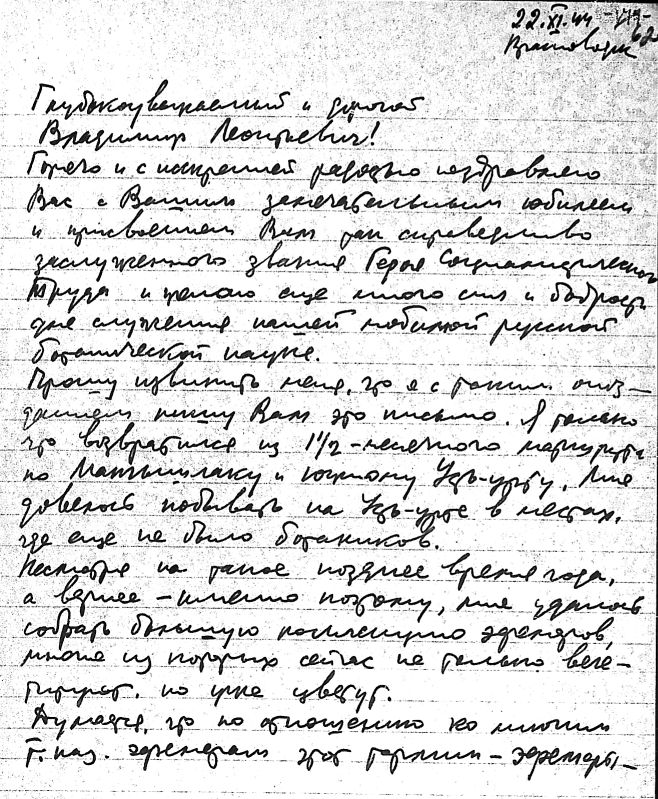 22.XI.44
Красноводск
Глубокоуважаемый и дорогой
Владимир Леонтьевич!
Горячо и с искренней радостью поздравляю
Вас с Вашим замечательным юбилеем
и присвоением Вам так справедливо
заслуженного звания Героя Социалистического
Труда и желаю еще много сил и бодрости
для служения нашей любимой русской
ботанической науке.
Прошу извинить меня, что я с таким опоз-
данием пишу Вам это письмо. Я только
что возвратился из 1 1/2-месячного маршрута
по Мангышлаку и южному Усть-урту. Мне
довелось побывать на Усть-урте в местах,
где еще не было ботаников.
Несмотря на такое позднее время года,
а вернее – именно поэтому, мне удалось
собрать большую коллекцию эфемеров,
многие из которых сейчас не только веге-
тируют, но уже цветут.
Думается, что по отношению ко многим
т. наз. эфемерам этот термин – эфемеры –